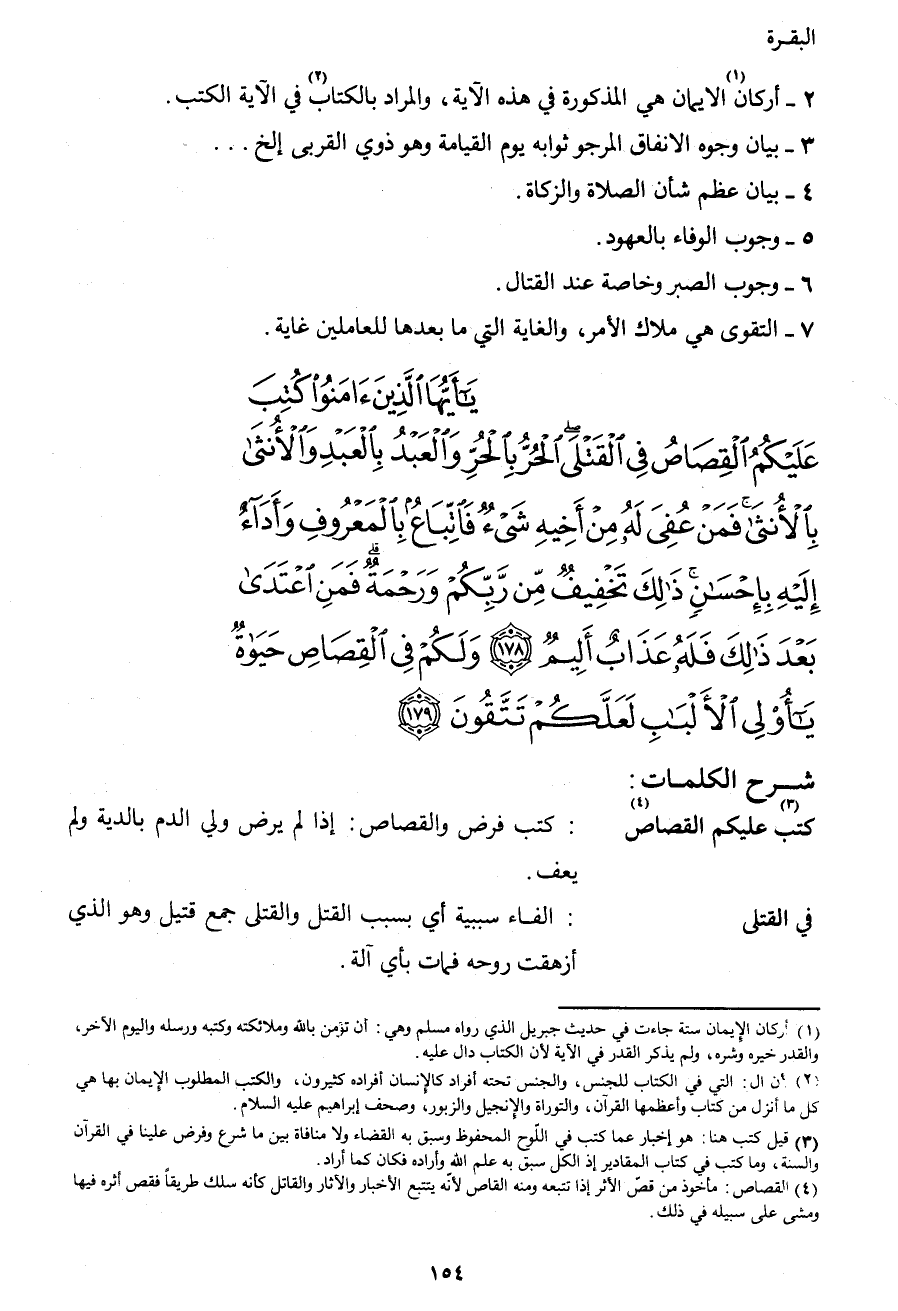 البقـرة
٢ ـ أركان(١) الايمان هي المذكورة في هذه الآية، والمراد بالكتاب(٢) في الآية الكتب.
٣ ـ بيان وجوه الانفاق المرجو ثوابه يوم القيامة وهو ذوي القربى إلخ . . .
٤ ـ بيان عظم شأن الصلاة والزكاة.
٥ ـ وجوب الوفاء بالعهود.
٦ ـ وجوب الصبر وخاصة عند القتال.
٧ ـ التقوى هي ملاك الأمر، والغاية التي ما بعدها للعاملين غاية.
يَـٰٓأَيُّهَا ٱلَّذِينَ ءَامَنُوا۟ كُتِبَ
عَلَيْكُمُ ٱلْقِصَاصُ فِى ٱلْقَتْلَى ۖ ٱلْحُرُّ بِٱلْحُرِّ وَٱلْعَبْدُ بِٱلْعَبْدِ وَٱلْأُنثَىٰ
بِٱلْأُنثَىٰ ۚ فَمَنْ عُفِىَ لَهُۥ مِنْ أَخِيهِ شَىْءٌ فَٱتِّبَاعٌۢ بِٱلْمَعْرُوفِ وَأَدَآءٌ
إِلَيْهِ بِإِحْسَـٰنٍ ۗ ذَٰلِكَ تَخْفِيفٌ مِّن رَّبِّكُمْ وَرَحْمَةٌ ۗ فَمَنِ ٱعْتَدَىٰ
بَعْدَ ذَٰلِكَ فَلَهُۥ عَذَابٌ أَلِيمٌ ١٧٨ وَلَكُمْ فِى ٱلْقِصَاصِ حَيَوٰةٌ
يَـٰٓأُو۟لِى ٱلْأَلْبَـٰبِ لَعَلَّكُمْ تَتَّقُونَ ١٧٩
شـرح الكلمـات :
كتب(٣) عليكم القصاص(٤) : كتب فرض والقصاص: إذا لم يرض ولي الدم بالدية ولم
يعف.
في القتلى : الفـاء سببية أي بسبب القتل والقتلى جمع قتيل وهو الذي
أزهقت روحه فمات بأي آلة.
(١) أركان الإيمان ستة جاءت في حديث جبريل الذي رواه مسلم وهي: أن تؤمن بالله وملائكته وكتبه ورسله واليوم الآخر،
والقدر خيره وشره، ولم يذكر القدر في الآية لأن الكتاب دال عليه.
(٢) لأن ال: التي في الكتاب للجنس، والجنس تحته أفراد كالإنسان أفراده كثيرون، والكتب المطلوب الإيمان بها هي
كل ما أنزل من كتاب وأعظمها القرآن، والتوراة والإنجيل والزبور، وصحف إبراهيم عليه السلام.
(٣) قيل كتب هنا: هو إخبار عما كتب في اللّوح المحفوظ وسبق به القضاء ولا منافاة بين ما شرع وفرض علينا في القرآن
والسنة، وما كتب في كتاب المقادير إذ الكل سبق به علم الله وأراده فكان كما أراد.
(٤) القصاص: مأخوذ من قصّ الأثر إذا تتبعه ومنه القاص لأنّه يتتبع الأخبار والآثار والقاتل كأنه سلك طريقاً فقص أثره فيها
ومشى على سبيله في ذلك.
١٥٤